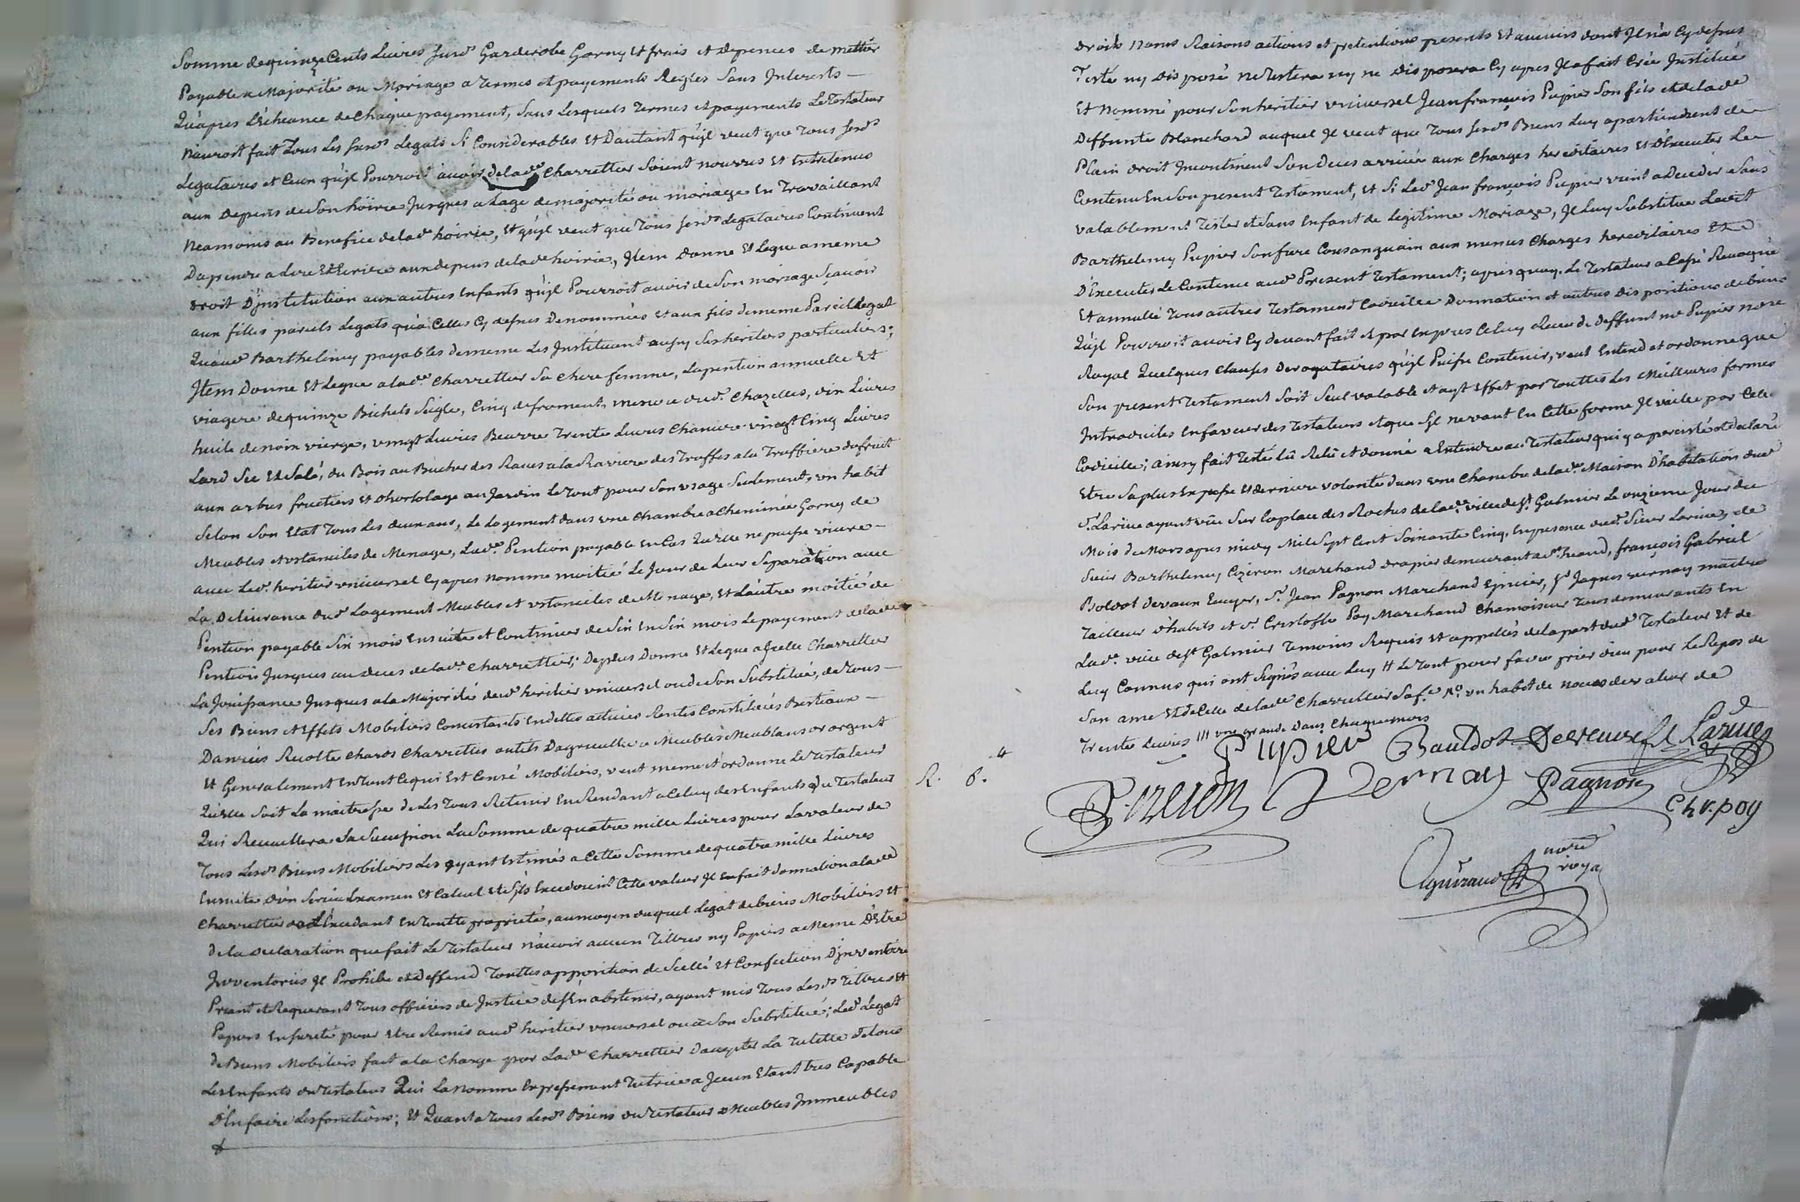 Somme de quinze Cents Livres Susd. Garderobe Garny et frais et depences de mettier
Payable a Majorité ou Mariage a Termes et payements Reglés Sans Interests
Qu'apres L'echeance de chaque payement, Sans Lesquels Termes et payements Le Testateur
N'auroit fait Tous Les susd. Legats Si Considerables Et Dautant qu'jl veut que Tous sesd.
Legataires et Ceux qu'jl Pourroit avoir de lad. Charrettier Soient nourris Et Entretenus
aux Depens de Son hoirie Jusques a Lage de majorité ou mariage En Travaillant
Neamoins au Benefice de lad. hoirie, Et qu'jl veut que Tous sesd. Legataires Continuent
Daprendre a Lire Et Ecrire aux depens de lad. hoirie, Jtem Donne Et Legue a meme
droit D'jnstitution aux autres Enfants qu'jl Pourroit avoir de Son mariage Sçavoir
aux filles pareils Legats qu'a Celles Cy dessus Denommées et aux fils de meme Pareil Legat
Qu'aud. Barthelemy payables de meme Les Jnstituant aussy Ses heritiers particuliers;
Jtem Donne Et Legue a lad. Charrettier Sa Chere femme, La pention annuelle Et
viagere de quinze Bichets Seigle, Cinq de froment, mesure dud. Chazelles, dix Livres
huile de noix vierge, vingt Livres Beurre Trente Livres Chanvre vingt Cinq Livres
Lard Sec Et Salé, du Bois au Bucher des Raves a la Raviere des Truffes a la Truffiere du fruit
aux arbres fruitiers Et d'hortolage au Jardin Le Tout pour Son usage Seulement, un habit
Selon Son Etat Tous Les deux ans, Le Logement dans une Chambre a Cheminée Garny de
Meubles et ustanciles de Menage, Lad. Pention payable En Cas Qu'elle ne puisse vivre
avec Led. heritier universel Cy apres nommé moitié Le Jour de Leur Separation avec
La Delivrance dud. Logement Meubles et ustanciles de Menage, Et L'autre moitié de
Pention payable Six mois Ensuite et Continuer de Six En Six mois Le payement de lad.
Pention Jusques au deces de lad. Charrettier; De plus Donne Et Legue a Jcelle Charrettier
La Jouissance Jusques a la Majorité de Sond. heritier universel ou de Son Substitué, de Tous
Ses Biens et Effets Mobiliers Concistants En dettes actives Rentes Constituées Bestiaux
Danrées Recolte Chards Charrettes outils Dagriculture Meubles Meublans or argent
Et Generalement En Tout Ce qui Est Censé Mobiliers, veut meme et ordonne Le Testateur
Qu'elle Soit La maitresse de Les Tous Retenir En Rendant a Celuy des Enfants du Testateur
Qui Recueillera Sa Succession La Somme de quatre mille Livres pour La valeur de
Tous Lesd. Biens Mobiliers Les ayant Estimés a Cette Somme de quatre mille Livres
Ensuite d'un Serieux Examen et Calcul Et S'jls Excedoient Cette valeur Jl En fait donnation a lad.
Charrettier de L'Excedant En Toutte proprieté, au moyen duquel Legat de biens Mobiliers Et
de la declaration que fait Le Testateur N'avoir aucun Tittres ny Papiers a Meme D'Etre
Jnventoriés Jl Prohibe et deffend Touttes apposition de Scellé Et Confection D'jnventaire
Priant et Requerant Tous officiers de Justice de S'En abstenir, ayant mis Tous Lesd. Tittres Et
Papiers En sureté pour Etre Remis aud. heritier universel ou a Son Substitué; Led. Legat
de Biens Mobiliers fait a la Charge par Lad. Charrettier Daccepter La Tutelle de Tous
Les Enfants du Testateur Qui La nomme Expressement Tutrice a Jceux Etant tres Capable
D'En faire Les fonctions; Et Quant a Tous Lesd. Biens du Testateur Meubles Jmmeubles
droits Noms Raisons actions et pretentions presents Et avenirs dont Jl n'a Cy dessus
Testé ny Disposé ne Testera ny ne Disposera Cy apres Jl a fait Créé Jnstitué
Et Nommé pour Son heritier universel Jean françois Pupier Son fils et de lad.
Deffunte Blanchard auquel Jl veut que Tous Sesd. Biens Luy apartiennent de
Plain droit Jncontinent Son deces arrivée aux Charges hereditaires Et D'Executer Le
Contenu En Son present Testament, Et Si Led. Jean françois Pupier vient a Deceder Sans
valablement Tester et Sans Enfant de Legitime Mariage, Jl Luy Substitue Ledit
Barthelemy Pupier Son frere Consanguain aux memes Charges hereditaires Et
D'Executer Le Contenu aud. Present Testament; apres quoy Le Testateur a Cassé Revoqué
Et annullé Tous autres Testament Codicille Donnation et autres Dispositions de biens
Qu'jl Pourroit avoir Cy devant fait et par Exprès Celuy Receu de deffunt me Pupier nore
Royal Quelques Clauses Derogatoires qu'jl Puisse Contenir, veut Entend et ordonne que
Son present Testament Soit Seul valable et ayt Effet par Touttes Les Meilleures formes
Introduites En faveur des Testateurs et que S'jl ne vaut En Cette forme Jl vaille par Celle
Codicille; ainsy fait Testé Lû Relû et donné a Entendre au Testateur qui y a persisté et declaré
Etre Sa plus Expresse Et derniere volonté dans une Chambre de la Maison D'habitation dud.
Sr. Larive ayant vüe Sur la place des Roches de lad. ville de St. Galmier Le onzieme Jour du
Mois de Mars apres midy Mil Sept Cent Soixante Cinq, En presence dud. Sieur Larive, de
Sieur Barthelemy Cizeron Marchand drapier demeurant a St. heand, françois Gabriel
Boldot Devaux Ecuyer, Sr. Jean Pagnon Marchand Epicier, Sr. Jaques vernay maitre
Tailleur d'habits et Sr. Cristofle Poy Marchand Chamoiseur Tous demeurants En
Lad. ville de St. Galmier Temoins Requis Et appellés de la part dud. Testateur Et de
Luy Connus qui ont Signés avec Luy # Le Tout pour faire prier dieu pour Le Repos de
Son ame Et de Celle de lad. Charrettier Sa fe. un habit de
Trente Livres /// une Grande dans
Pupier Bauldot Devaux Larive
R. 6. 4
Cizeron Vernay Pagnon
Chr. poy
Aguiraud nore
roya